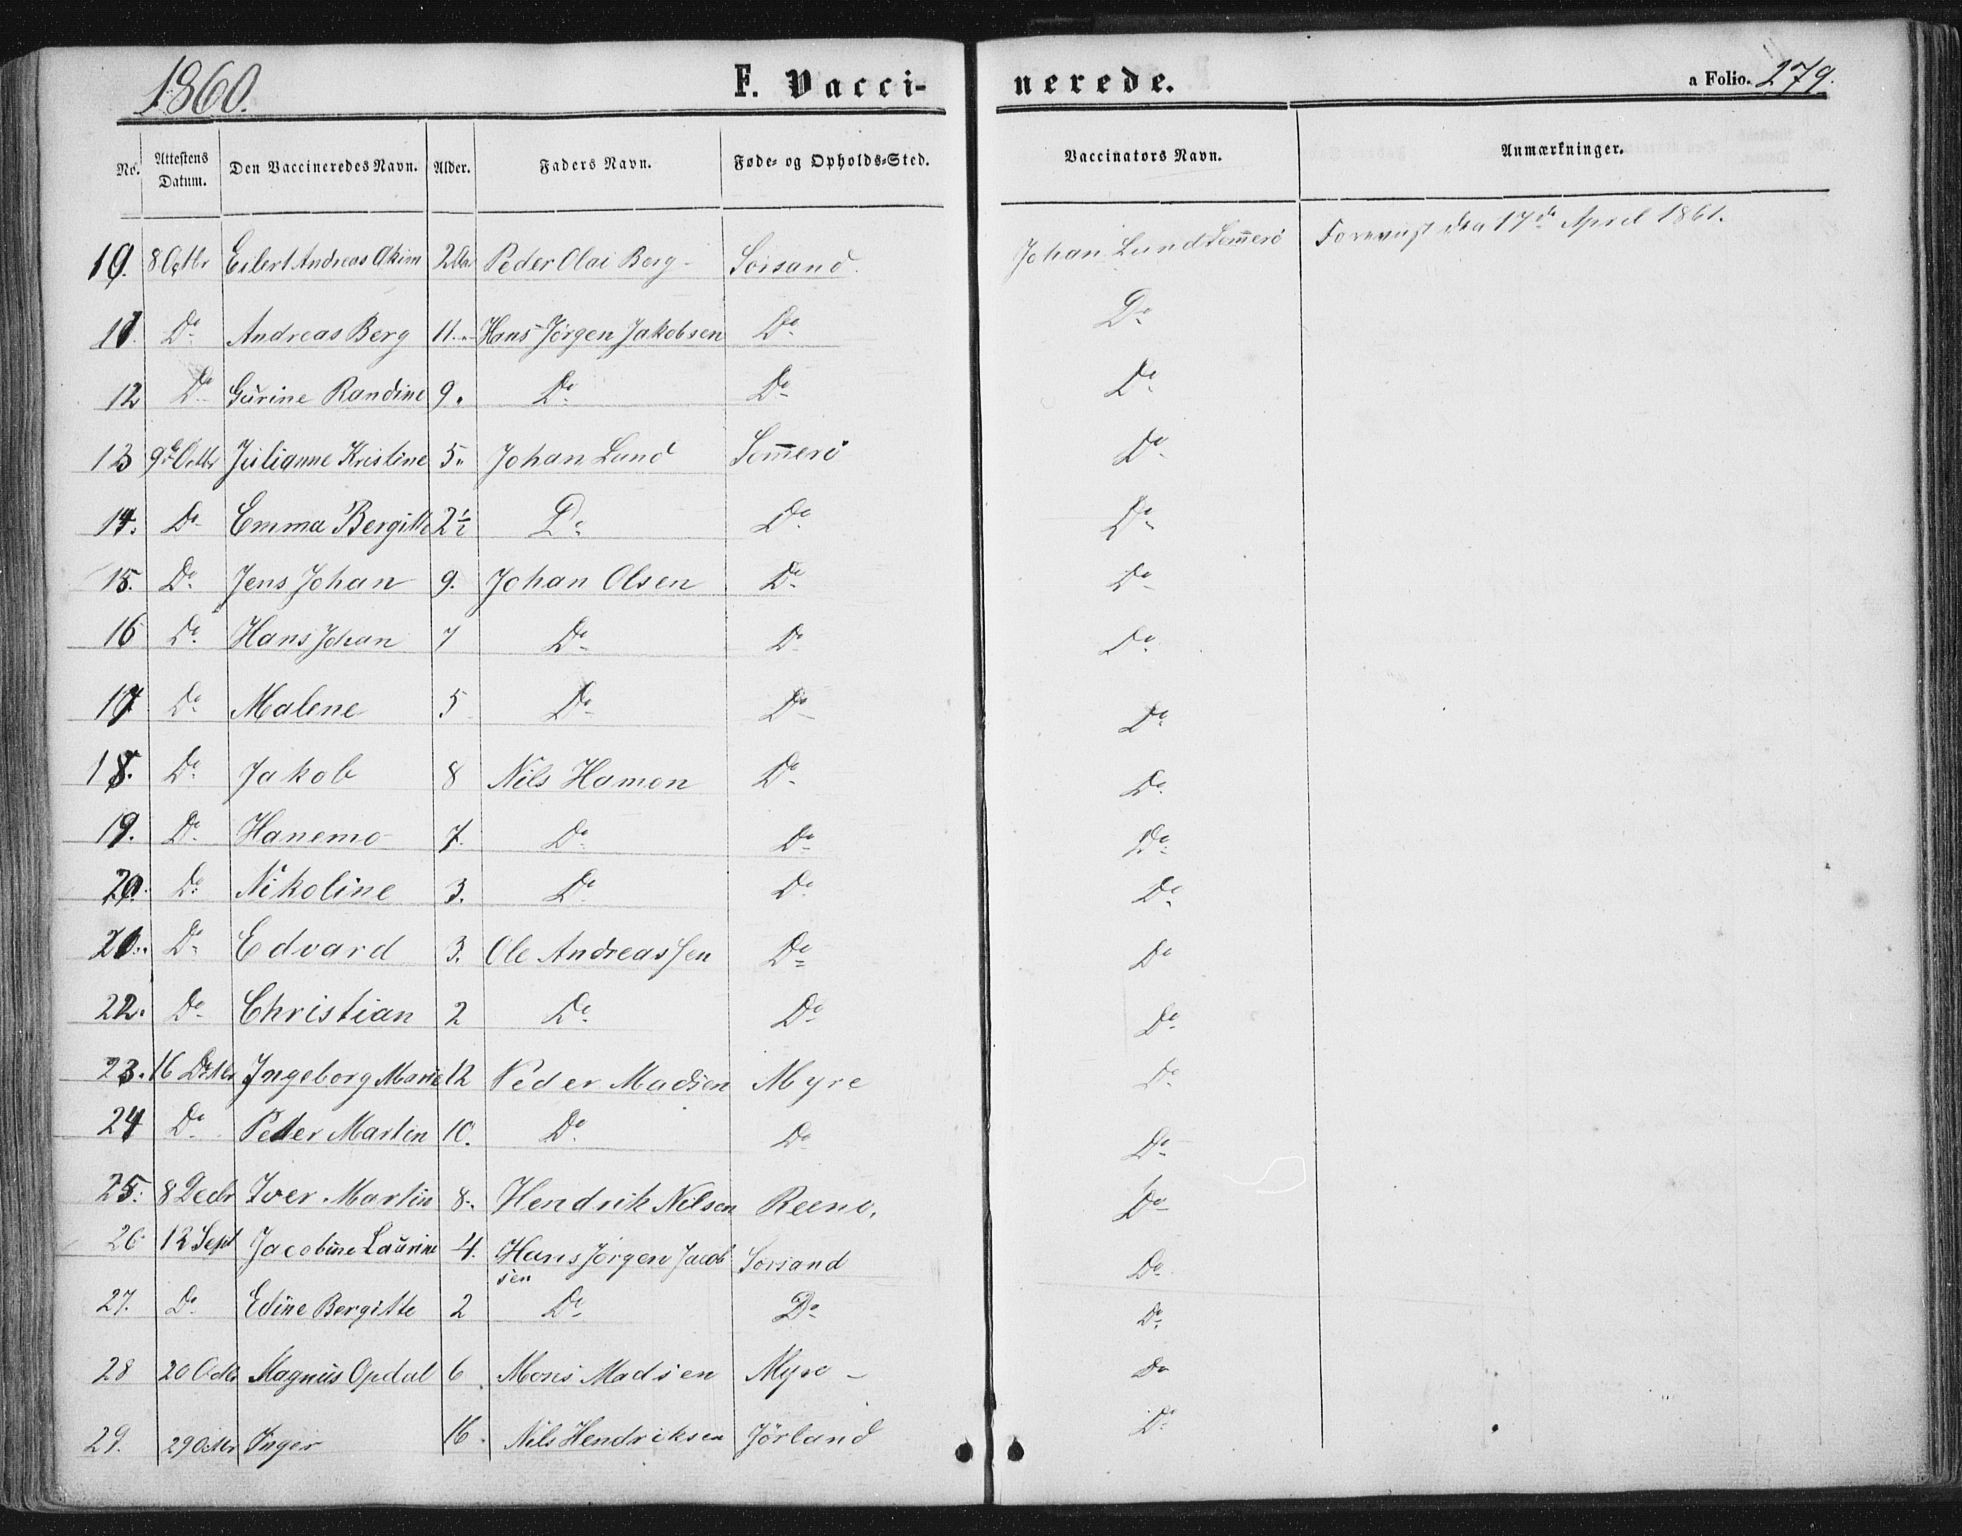 1860.
F. Vacci-
nerede.
a Folio. 279.
No.
Attestens Datum.
Den Vaccineredes Navn.
Alder.
Faders Navn.
Føde- og Opholds-Sted.
Vaccinators Navn.
Anmærkninger.
10. 8 Octbr Eilert Andreas Peder Olai Berg Sorsand Johan Lund Som̄erö den 17de April 1861.
11. Do Andreas Berg 11 Hans Jörgen Jakobsen Do Do
12 Do Gurine Randine 9. Do Do Do
13 9de Octbr Julianne Kristine 5 Johan Lund Som̄erö Do
14. Do Emma Bergitte 2½ Do Do Do
15. Do Jens Johan 9. Johan Olsen Do Do
16 Do Hans Johan 7 Do Do Do
17 Do Malene 5 Do Do Do
18. Do Jakob 8 Nils Hamon Do Do
19. Do Hanemo 7. Do Do Do
20. Do Nikoline 3. Do Do Do
21. Do Edvard 3. Ole Andreassen Do Do
22. Do Christian 2 Do Do Do
23. 16 Ingeborg Marie 12 Peder Madsen Myre Do
24 Do Peder Martin 10. Do Do Do
25. 8 Decbr Iver Martin 8. Hendrik Nilsen Do
26 12 Sept Jacobine Laurine 4. Hans Jörgen Jacob Sorsand Do
sen
27. Do Edine Bergitte 2 Do Do Do
28 20 Octbr Magnus Opdal 6 Mons Madsen Myre Do
29. 29 Octbr Inger 16. Nils Hendriksen Jörland Do